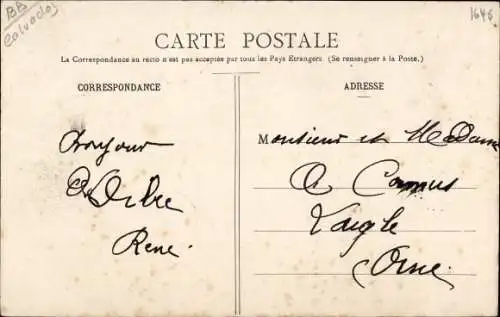 BB
Calvados
1646
CARTE POSTALE
La Correspondance au recto n'est pas acceptée par tous les Pays Etrangers. (Se renseigner à la Poste.)
CORRESPONDANCE
Bonjour
René
ADRESSE
Monsieur et Madame
A Camus
Laigle
Orne